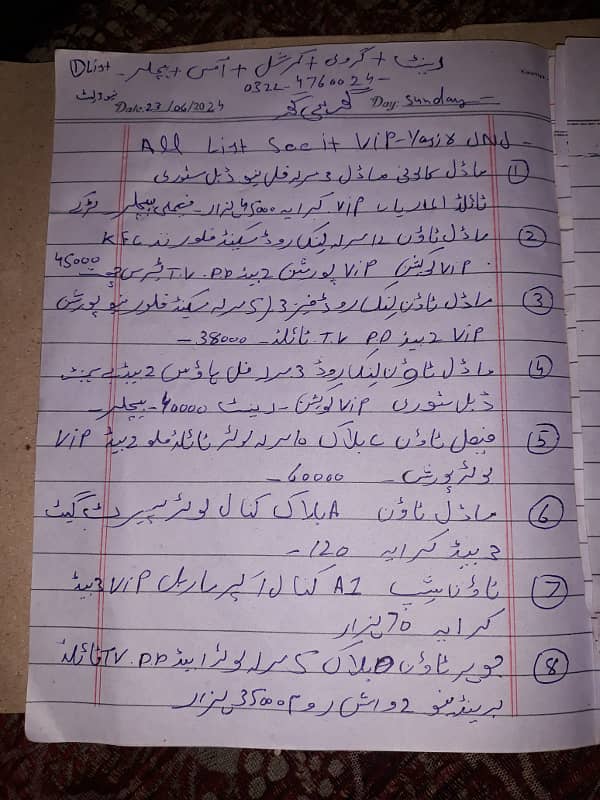 ① List رینٹ + گروی + کمرشل + آفس + بیچلر -
0322-4760024-
نیو لسٹ
Date: 23/06/2024 Day: Sunday
All List See it ViP-Yasir JNJ -
① ماڈل کالونی ماڈل 3 مرلہ فل نیو ڈبل سٹوری
ٹائلڈ الماریاں ViP کرایہ 45000 ہزار - فیملی بیچلر
② ماڈل ٹاؤن 12 مرلہ لنک روڈ سیکنڈ فلور نزد KFC
ViP لوکیشن ViP پورشن 2 بیڈ TV. DD ٹیرس 45000
③ ماڈل ٹاؤن لنک روڈ فیز 3 (5 مرلہ سیکنڈ فلور نیو پورشن
ViP 2 بیڈ TV. DD ٹائلڈ - 38000 -
④ ماڈل ٹاؤن لنک روڈ 3 مرلہ فل ہاؤس 2 بیڈ بیسمنٹ
ڈبل سٹوری ViP لوکیشن - رینٹ 40000 - بیچلر -
⑤ فیصل ٹاؤن C بلاک 10 مرلہ لوئر ٹائلڈ فلور 2 بیڈ ViP
لوئر پورشن - 60000 -
⑥ ماڈل ٹاؤن A بلاک کنال لوئر سپریٹ گیٹ
3 بیڈ کرایہ 120 -
⑦ ٹاؤن شپ A2 کنال اپر ماربل ViP 3 بیڈ
کرایہ 70 ہزار
⑧ جوہر ٹاؤن D بلاک 5 مرلہ لوئر 2 بیڈ TV. DD ٹائلڈ
برینڈ نیو 2 واش روم 35000 ہزار